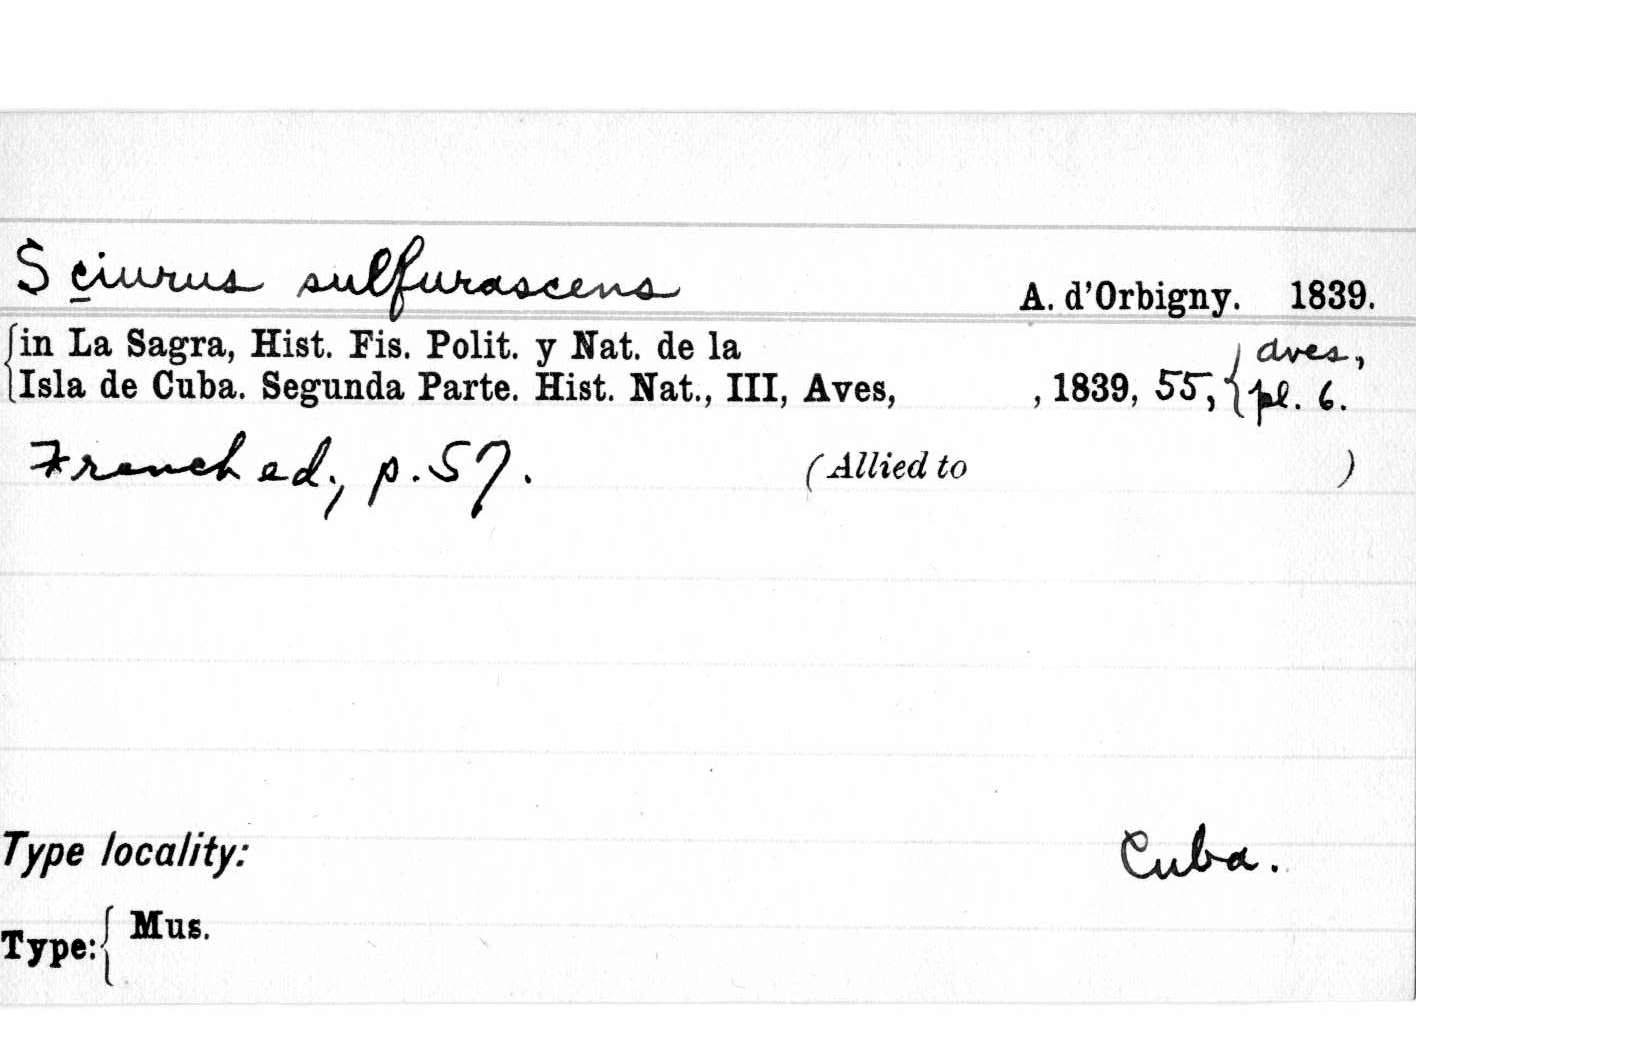 Sciurus sulfurascens A. d'Orbigny. 1839.
in La Sagra, Hist. Fis. Polit. y Nat. de la aves,
Isla de Cuba. Segunda Parte. Hist. Nat., III, Aves, , 1839, 55, pl. 6.
French ed., p. 57. (Allied to )
Type locality: Cuba.
Type: Mus.